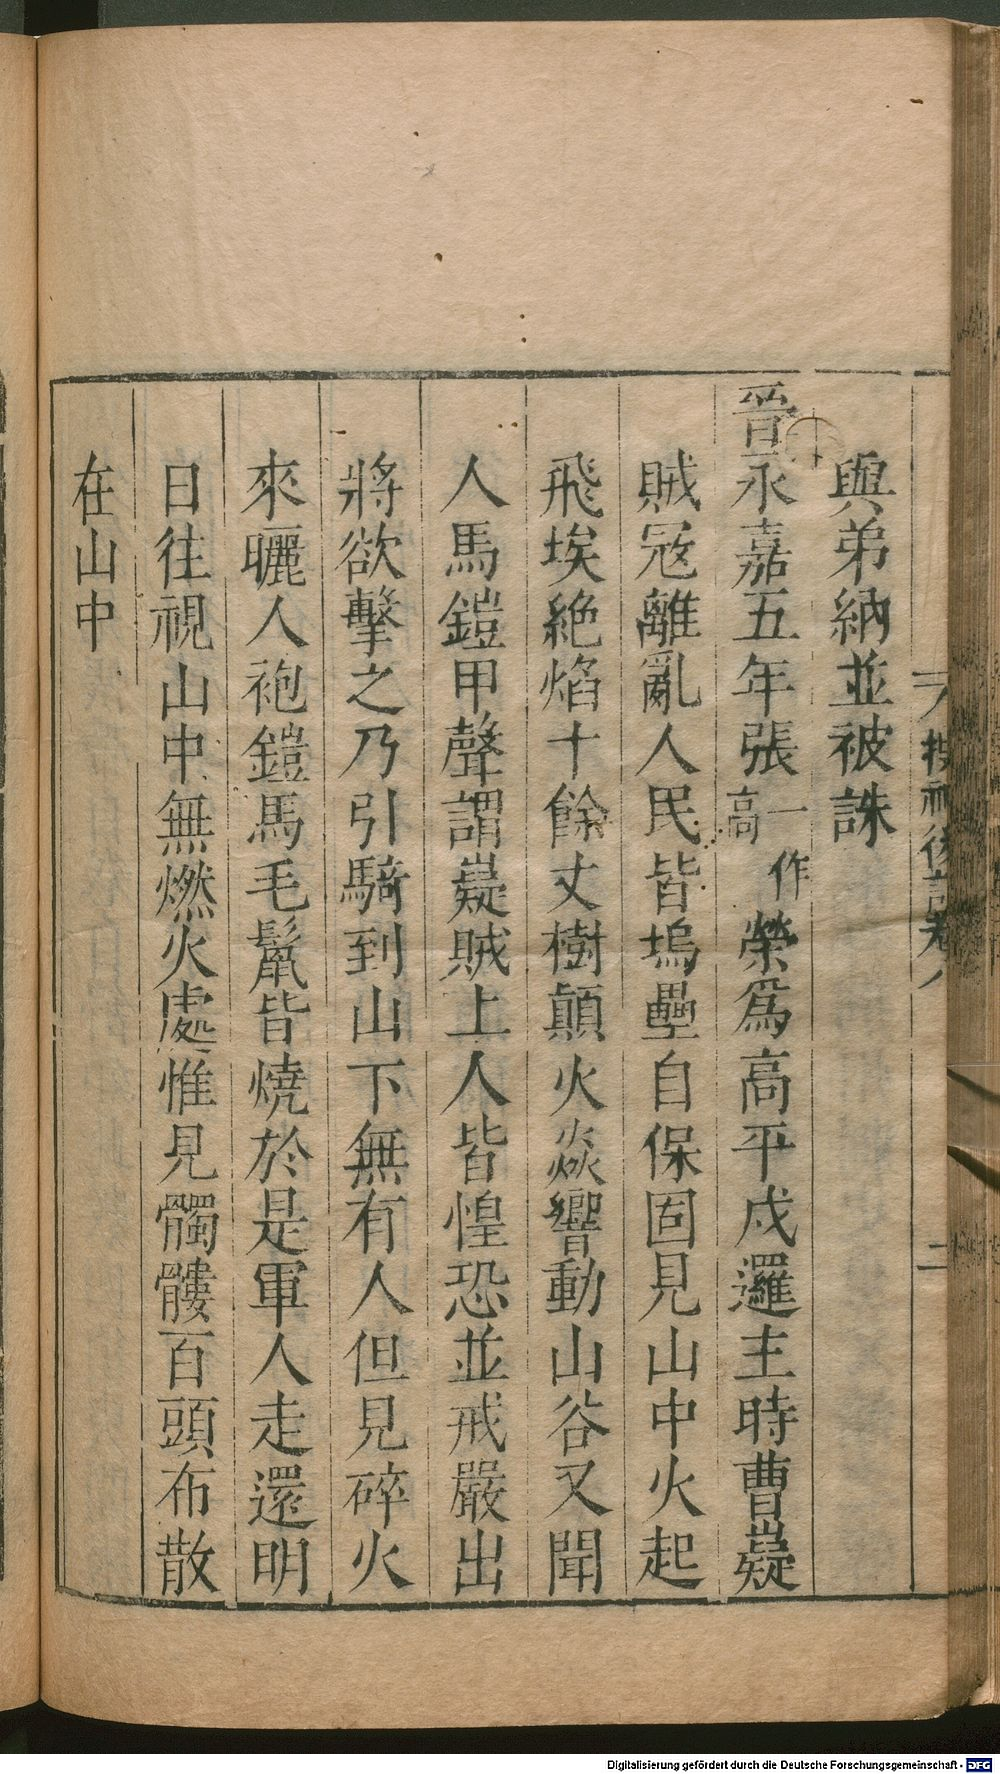 搜神後記卷八
二
與弟納並被誅
晉永嘉五年張一作高榮爲高平戍邏主時曹嶷
賊冦離亂人民皆塢壘自保固見山中火起
飛埃絶焰十餘丈樹顛火焱響動山谷又聞
人馬鎧甲聲謂嶷賊上人皆惶恐並戒嚴出
將欲擊之乃引騎到山下無有人但見碎火
來曬人袍鎧馬毛鬣皆燒於是軍人走還明
日往視山中無燃火處惟見髑髏百頭布散
在山中
Digitalisierung gefördert durch die Deutsche Forschungsgemeinschaft - DFG